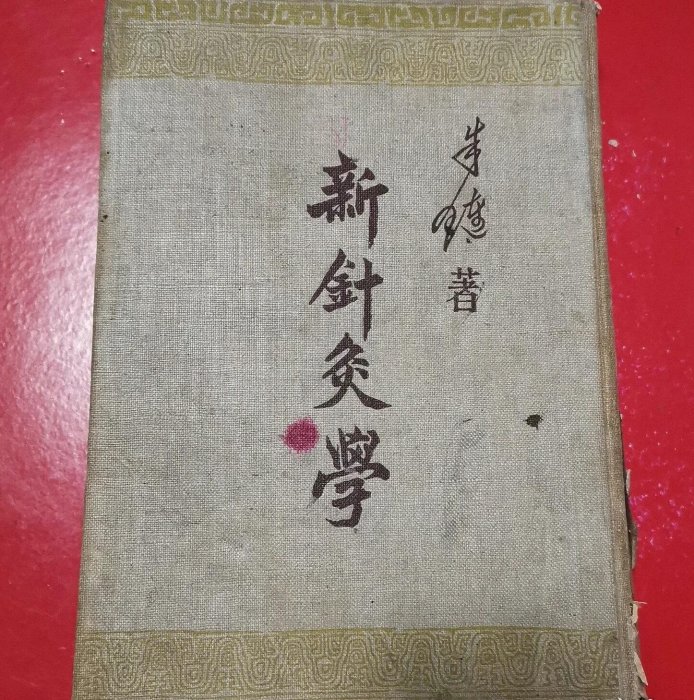 朱璉
著
新針灸學